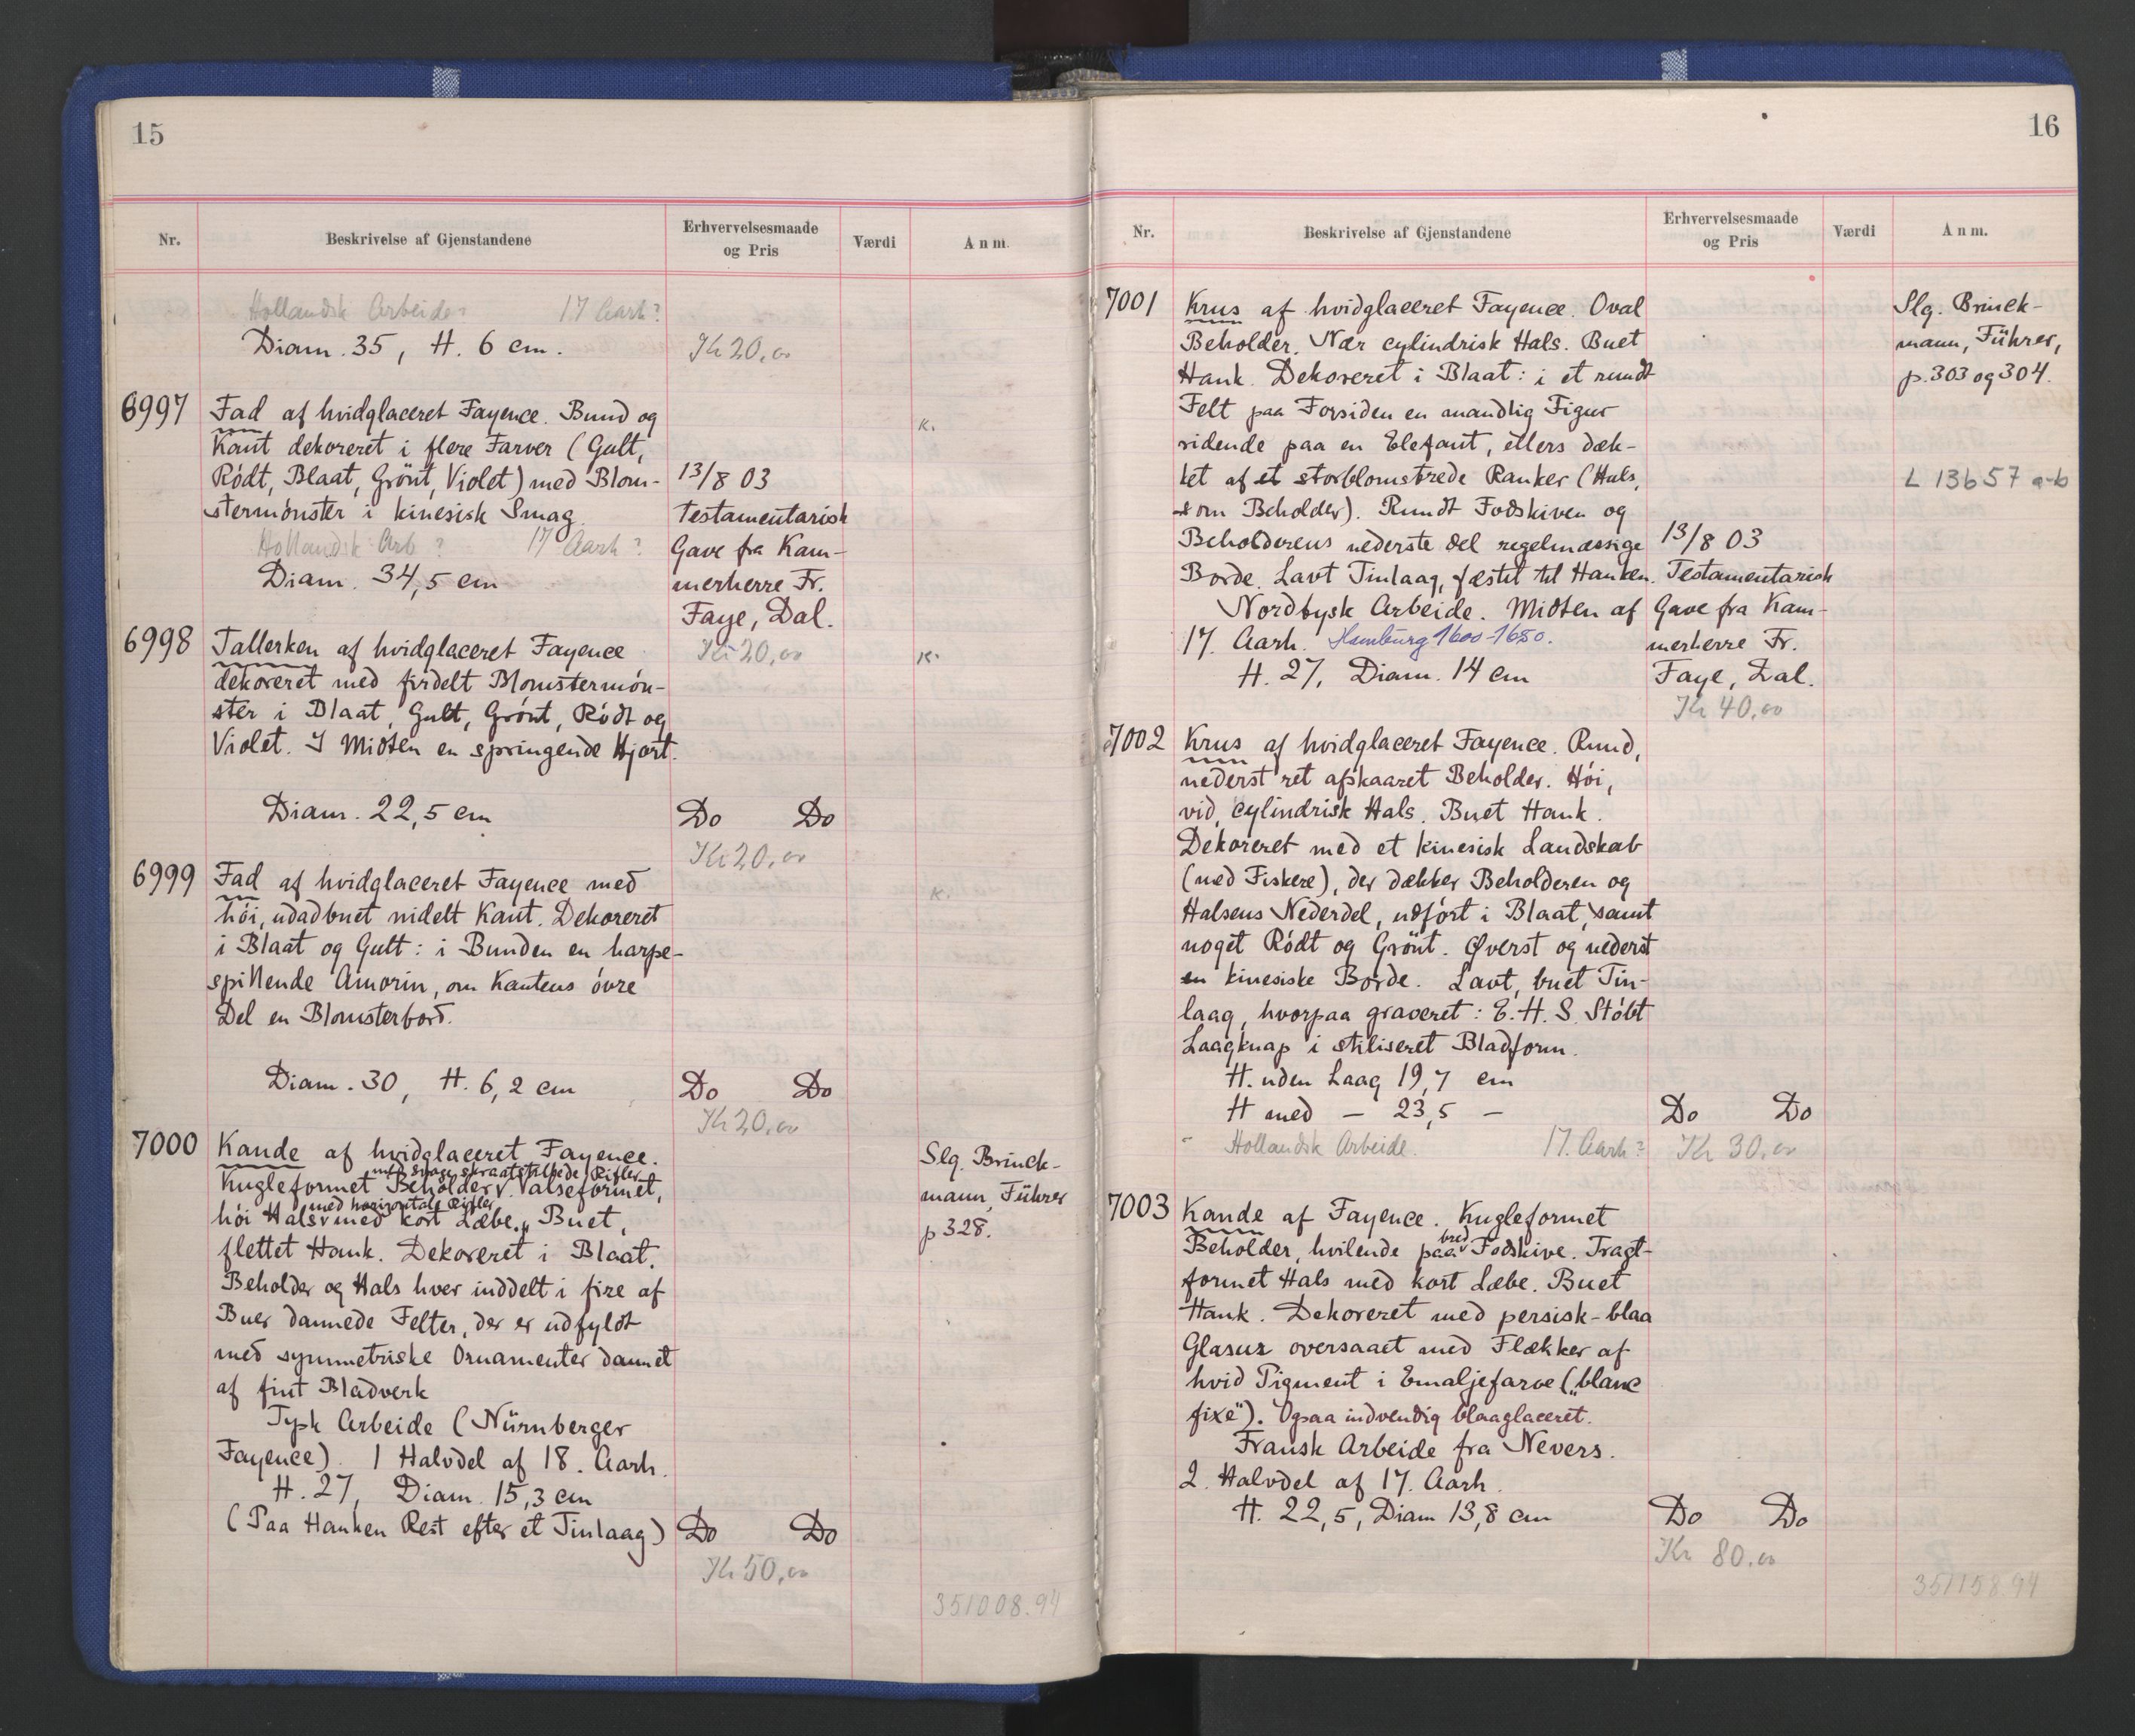 15
Nr.
Beskrivelse af Gjenstandene
Erhvervelsesmaade
og Pris
Værdi
Anm.
Hollandsk Arbeide? 17 Aarh?
Diam. 35, H. 6 cm.
Kr 20,00
6997
Fad af hvidglaceret Fayence. Bund og
Kant dekoreret i flere Farver (Gult,
Rödt, Blaat, Grönt, Violet) med Blom-
stermönster i kinesisk Smag.
Hollandsk Arb? 17 Aarh?
Diam. 34,5 cm
13/8 03
Testamentarisk
Gave fra Kam-
merherre Fr.
Faye, Dal.
Kr 20,00
K.
6998
Tallerken af hvidglaceret Fayence
dekoreret med firdelt Blomstermön-
ster i Blaat, Gult, Grönt, Rödt og
Violet. I Midten en springende Hjort.
Diam. 22,5 cm
Do Do
Kr 20,00
K.
6999
Fad af hvidglaceret Fayence med
höi, udadbuet nidelt Kant. Dekoreret
i Blaat og Gult: i Bunden en harpe-
spillende Amorin, om Kantens övre
Del en Blomsterbord.
Diam. 30, H. 6,2 cm
Do Do
Kr 20,00
K.
7000
Kande af hvidglaceret Fayence.
med svage skraatstillede Rifler
Kugleformet Beholder v. Valseformet,
med horizontale Rifler
höi Hals v med kort Læbe. Buet,
flettet Hank. Dekoreret i Blaat.
Beholder og Hals hver inddelt i fire af
Buer dannede Felter, der er udfyldt
med symmetriske Ornamenter dannet
af fint Bladverk
Tysk Arbeide (Nürnberger
Fayence). 1 Halvdel af 18. Aarh.
H. 27, Diam. 15,3 cm
(Paa Hanken Rest efter et Tinlaag)
Do Do
Kr 50,00
Slg. Brinck-
mann, Führer
p 328.
351008.94
16
Nr.
Beskrivelse af Gjenstandene
Erhvervelsesmaade
og Pris
Værdi
Anm.
7001
Krus af hvidglaceret Fayence. Oval
Beholder. Nær cylindrisk Hals. Buet
Hank. Dekoreret i Blaat: i et rundt
Felt paa Forsiden en mandlig Figur
ridende paa en Elefant, ellers dæk-
ket af et storblomstrede Ranker (Hals,
som Beholder). Rundt Fodskiven og
Beholderens nederste del regelmæssige
Borde. Lavt Tinlaag, fæstet til Hanken.
Nordtysk Arbeide. Midten af
17. Aarh. Hamburg 1600-1650.
H. 27, Diam. 14 cm
13/8 03
Testamentarisk
Gave fra Kam-
merherre Fr.
Faye, Dal.
Kr 40,00
Slg. Brinck-
mann, Führer,
p. 303 og 304.
L 13657 a-b
7002
Krus af hvidglaceret Fayence. Rund,
nederst ret afskaaret Beholder. Höi,
vid, cylindrisk Hals. Buet Hank.
Dekoreret med et kinesisk Landskab
(med Fiskere), der dækker Beholderen og
Halsens Nederdel, udfört i Blaat, samt
noget Rödt og Grönt. Øverst og nederst
en kinesiske Borde. Lavt, buet Tin-
laag, hvorpaa graveret: E. H. S. Stöbt
Laagknap i stiliseret Bladform.
H. uden Laag 19,7 cm
H med — 23,5 —
Hollandsk Arbeide. 17. Aarh?
Do Do
Kr 30,00
7003
Kande af Fayence. Kugleformet
bred
Beholder, hvilende paa v Fodskive. Tragt-
formet Hals med kort Læbe. Buet
Hank. Dekoreret med persisk-blaa
Glasur oversaaet med Flækker af
hvid Pigment i Emaljefarve („blanc
fixe"). Ogsaa indvendig blaaglaceret.
Fransk Arbeide fra Nevers.
2. Halvdel af 17. Aarh.
H. 22,5, Diam 13,8 cm
Do Do
Kr 80.00
351158.94